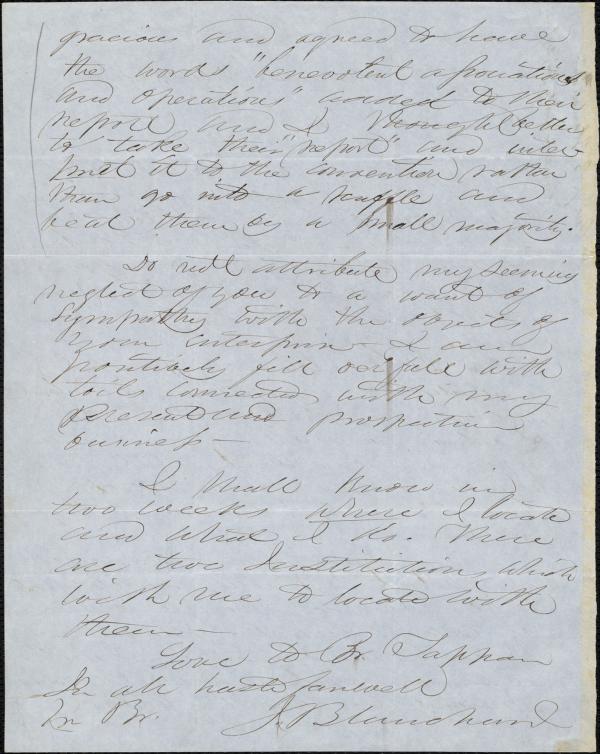 gracious and agreed to have
the words "benevolent associations
and operations" added to their
report and I thought better
to take their "report" and
it to the convention rather
than go into a scuffle and
beat them by a small majority.
Do not attribute my seeming
neglect of you to a want of
sympathy with the objects of
your enterprise - I am
positively fill over full with
toils connected with my
present and prospective
business -
I shall know in
two weeks where I locate
and what I do. There
are two Institutions which
wish me to locate with
them -
Love to Br. Tappan
In all haste farewell
In Br. J. Blanchard